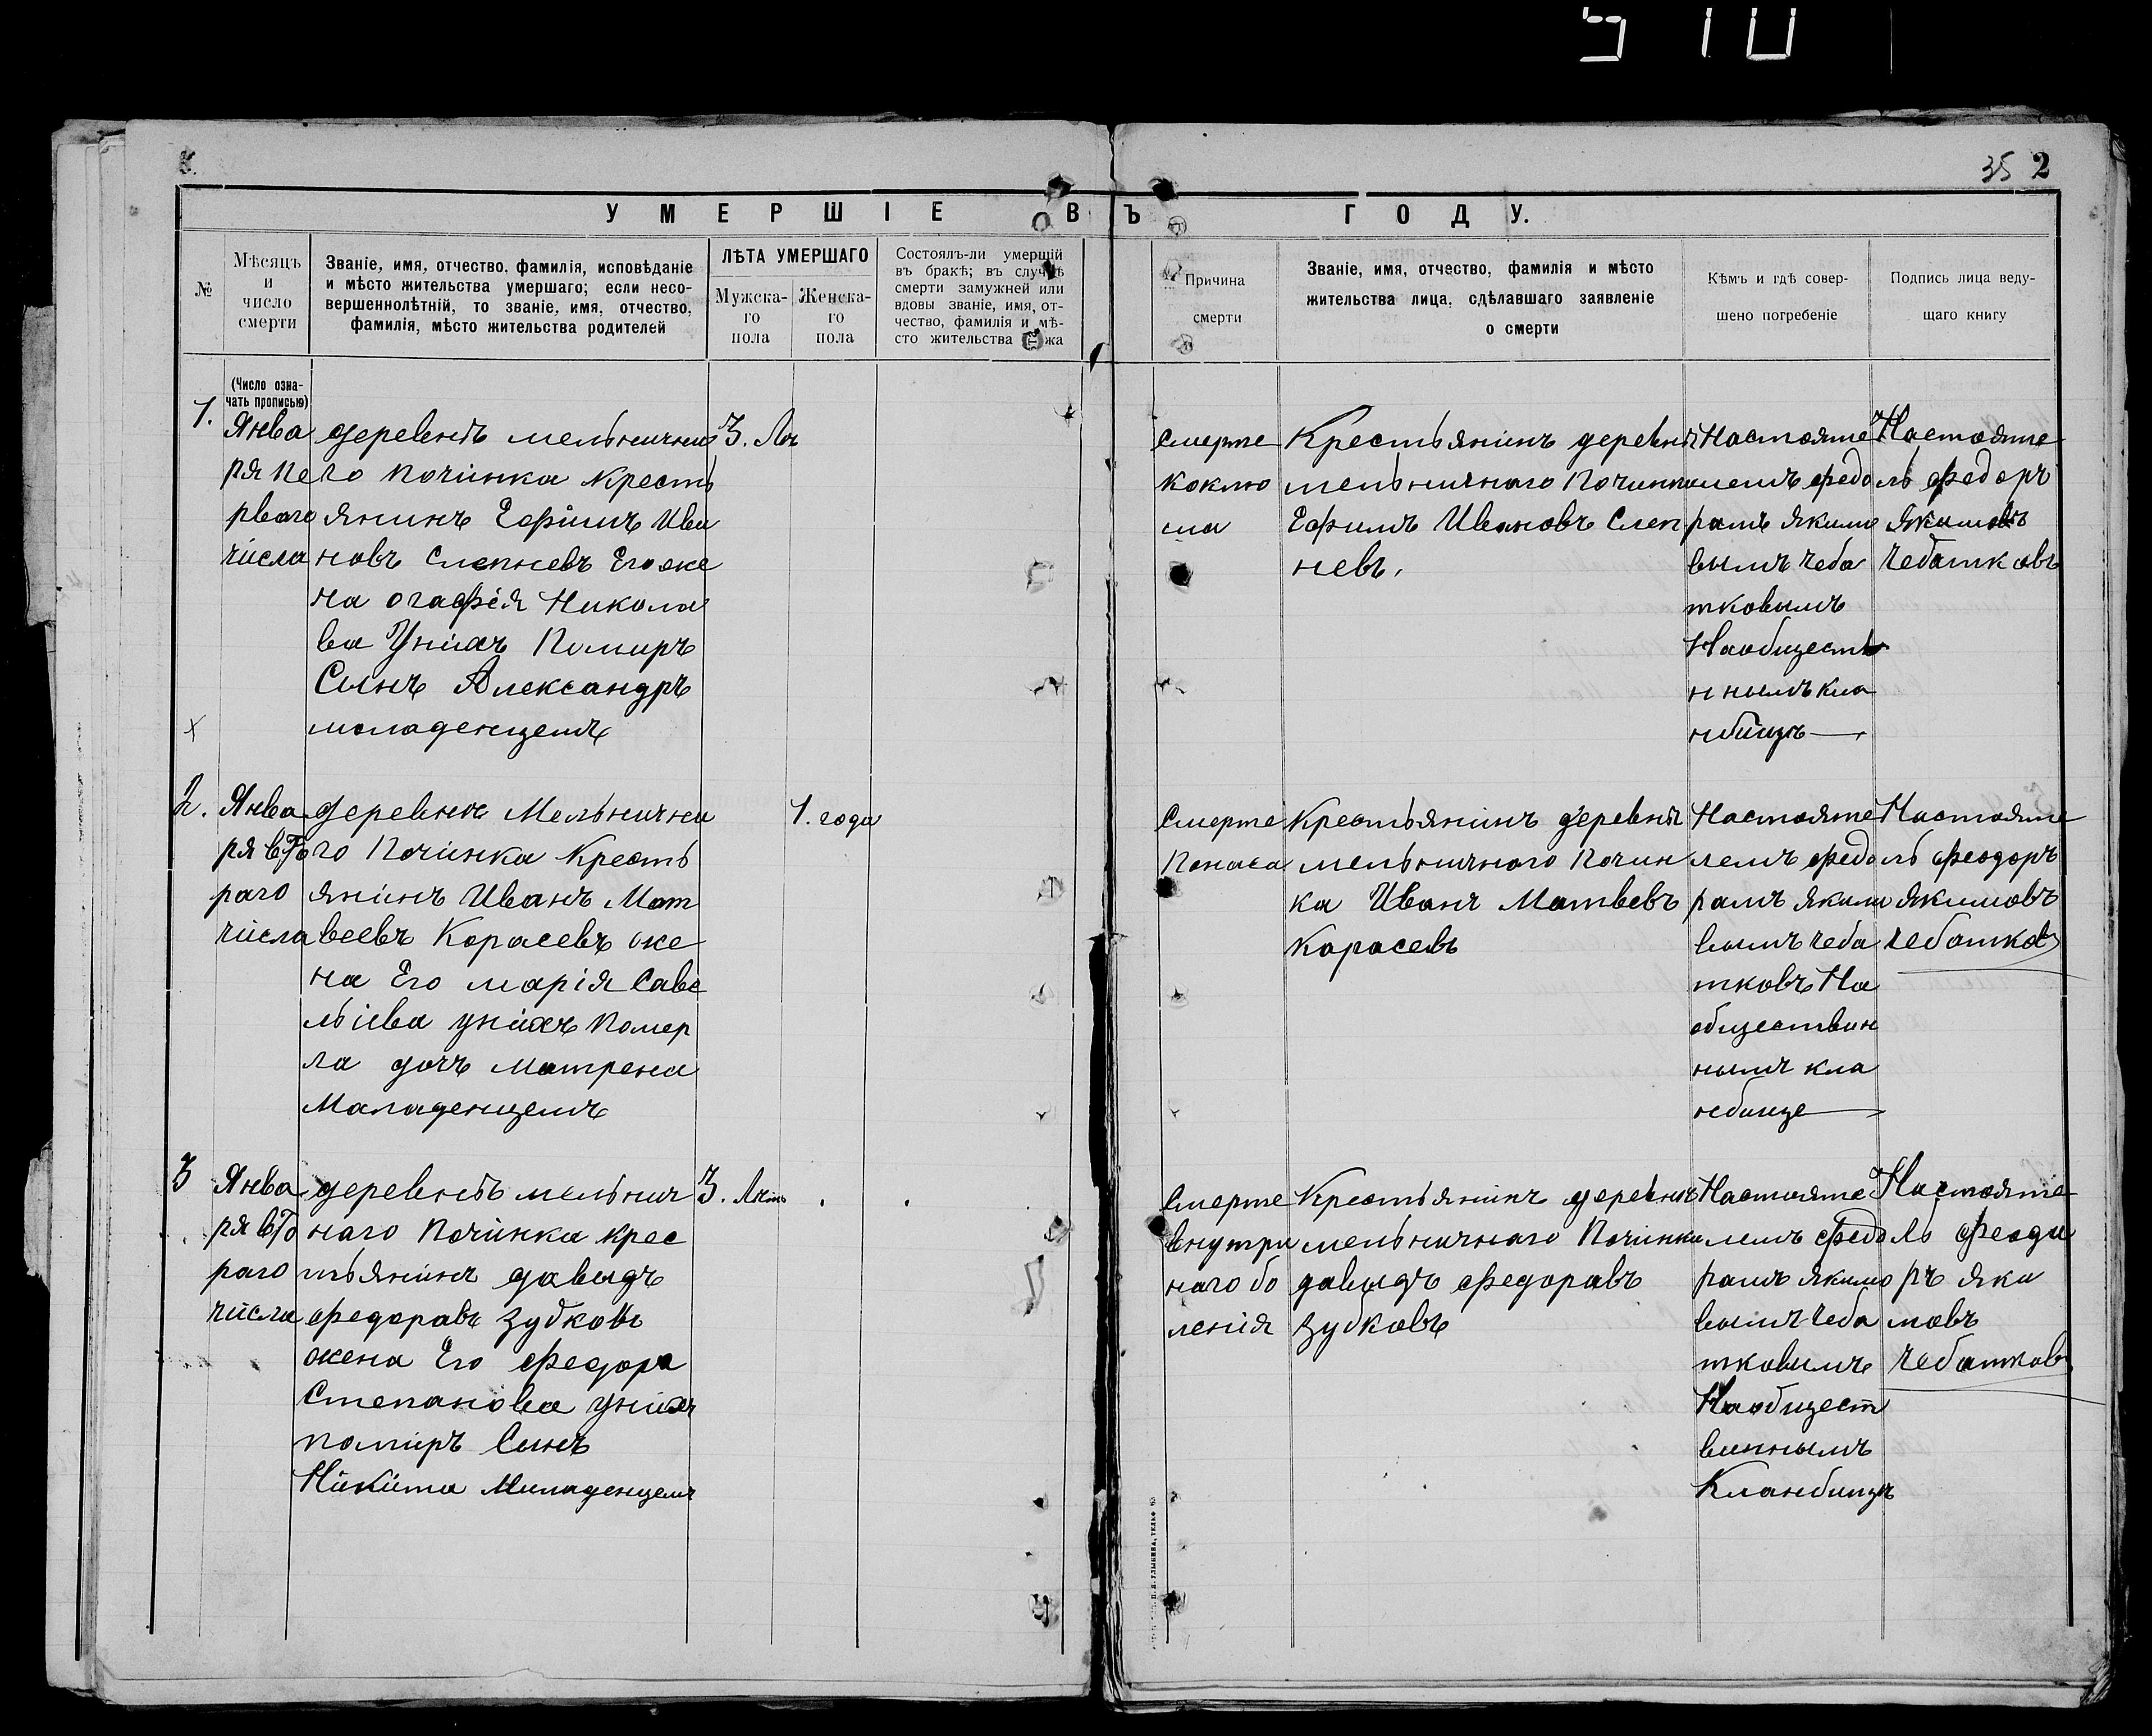 510
35 2
УМЕРШІЕ ВЪ ГОДУ.
№
Мѣсяцъ
и
число
смерти
Званіе, имя, отчество, фамилія, исповѣданіе
и мѣсто жительства умершаго; если несо-
вершеннолѣтній, то званіе, имя, отчество,
фамилія, мѣсто жительства родителей
ЛѢТА УМЕРШАГО
Мужска-
го
пола
Женска-
го
пола
Состоялъ-ли умершій
въ бракѣ; въ случаѣ
смерти замужней или
вдовы званіе, имя, от-
чество, фамилія и мѣ-
сто жительства мужа
Причина
смерти
Званіе, имя, отчество, фамилія и мѣсто
жительства лица, сдѣлавшаго заявленіе
о смерти
Кѣмъ и гдѣ совер-
шено погребеніе
Подпись лица веду-
щаго книгу
(Число озна-
чать прописью)
1.
Янва
ря пе
рваго
числа
деревнѣ мельнична
го Починка Кресть
янинъ Ефимъ Ива
новъ Слепневъ Его же
на огафія Никола
ва Унихъ Помиръ
Сынъ Александръ
моладенцемъ
3. Лѣ
Смерте
коклю
ша
Крестьянинъ деревнѣ
мельничнаго Починка
Ефимъ Ивановъ Слеп
невъ,
Настояте
лемъ федо
рамъ якимо
вымъ чеба
тковымъ
Наобществ
ннымъ кла
нбищъ
Настояте
ль федоръ
якимовъ
чебатковъ
2.
Янва
ря вто
раго
числа
деревнѣ Мельнична
го Починка Кресть
янинъ Иванъ Мат
веевъ Корасевъ же
на Его марія Саве
льива унихъ помер
ла дочъ матрена
Маладенцемъ
1. года
Смерте
Поноса
Крестьянинъ деревнѣ
мельничного Почин
ка Иванъ Матвевъ
Карасевъ
Настояте
лемъ федо
рамъ якими
вымъ чеба
тковъ На
обществин
нымъ кла
нбище
Настояте
ль феодоръ
якимовъ
чебатков
3
Янва
ря вто
раго
числа
деревнѣ мельнич
наго Починка крес
тьянинъ давыдъ
федоравъ Зубковъ
жена Его федора
Степанова унихъ
помиръ Сынъ
Никита Миладенцемъ
3. Лѣтъ
Смерте
внутри
наго бо
ления
Крестьянинъ деревнѣ
мельничнаго Починка
давыдъ федоравъ
Зубковъ
Настояте
лемъ федо
рамъ якимо
вымъ чеба
тковымъ
Наобщест
виннымъ
Кланбищъ
Настояте
ль феода
ръ яки
мовъ
чебатковъ